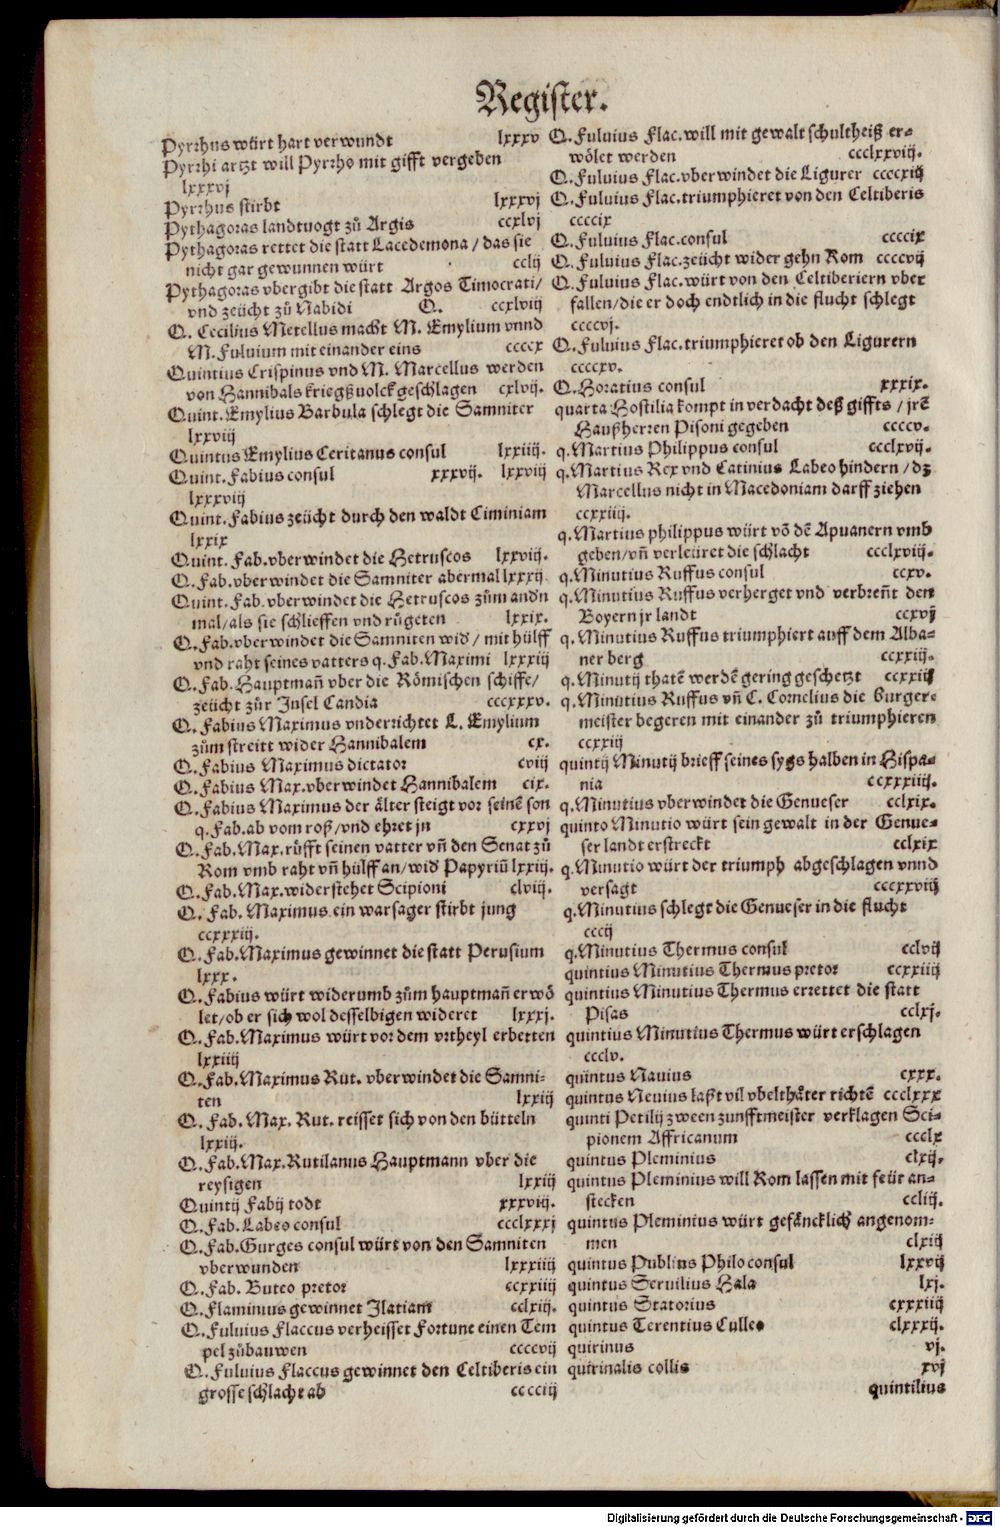 Register.
Pyrrhus würt hart verwundt lxxxv
Pyrrhi artzt will Pyrrho mit gifft vergeben
lxxxvj
Pyrrhus stirbt lxxxvj
Pythagoras landtuogt zů Argis ccxlvj
Pythagoras rettet die statt Lacedemona / das sie
nicht gar gewunnen würt cclij
Pythagoras vbergibt die statt Argos Timocrati /
vnd zeücht zů Nabidi Q. ccxlviij
Q. Cecilius Metellus macht M. Emylium vnnd
M. Fuluium mit einander eins ccccx
Quintius Crispinus vnd M. Marcellus werden
von Hannibals kriegßuolck geschlagen cxlvij.
Quint. Emylius Barbula schlegt die Samniter
lxxviij
Quintus Emylius Ceritanus consul lxxiiij.
Quint. Fabius consul xxxvij. lxxviij
lxxxviij
Quint. Fabius zeücht durch den waldt Ciminiam
lxxix
Quint. Fab. vberwindet die Hetruscos lxxviij.
Q. Fab. vberwindet die Samniter abermal lxxxij
Quint. Fab. vberwindet die Hetruscos zům andn
mal / als sie schlieffen vnd růgeten lxxix.
Q. Fab. vberwindet die Samniten wid / mit hülff
vnd raht seines vatters q. Fab. Maximi lxxxiij
Q. Fab. Hauptmañ vber die Römischen schiffe /
zeücht zůr Insel Candia cccxxxv.
Q. Fabius Maximus vnderrichtet L. Emylium
zům streitt wider Hannibalem cx.
Q. Fabius Maximus dictator cviij
Q. Fabius Max. vberwindet Hannibalem cix.
Q. Fabius Maximus der älter steigt vor seinẽ son
q. Fab. ab vom roß / vnd ehret jn cxxvj
Q. Fab. Max. růfft seinen vatter vñ den Senat zů
Rom vmb raht vñ hülff an / wid Papyriũ lxxiij.
Q. Fab. Max. widerstehet Scipioni clviij.
Q. Fab. Maximus ein warsager stirbt jung
ccxxxiij.
Q. Fab. Maximus gewinnet die statt Perusium
lxxx.
Q. Fabius würt widerumb zům hauptmañ erwö
let / ob er sich wol desselbigen wideret lxxxj.
Q. Fab. Maximus würt vor dem vrtheyl erbetten
lxxiiij
Q. Fab. Maximus Rut. vberwindet die Samni-
ten lxxiij
Q. Fab. Max. Rut. reisset sich von den bütteln
lxxiij.
Q. Fab. Max. Rutilanus Hauptmann vber die
reysigen lxxiij
Quintij Fabij todt xxxviij.
Q. Fab. Labeo consul ccclxxxj
Q. Fab. Gurges consul würt von den Samniten
vberwunden lxxxiiij
Q. Fab. Buteo pretor ccxxiiij
Q. Flaminius gewinnet Ilatiam cclxij.
Q. Fuluius Flaccus verheisset Fortune einen Tem
pel zůbauwen ccccvij
Q. Fuluius Flaccus gewinnet den Celtiberis ein
grosse schlacht ab cccciij
Q. Fuluius Flac. will mit gewalt schultheiß er-
wölet werden ccclxxviij.
Q. Fuluius Flac. vberwindet die Ligurer ccccxiij
Q. Fuluius Flac. triumphieret von den Celtiberis
ccccix
Q. Fuluius Flac. consul ccccix
Q. Fuluius Flac. zeücht wider gehn Rom ccccvij
Q. Fuluius Flac. würt von den Celtiberiern vber
fallen / die er doch endtlich in die flucht schlegt
ccccvj.
Q. Fuluius Flac. triumphieret ob den Ligurern
ccccxv.
Q. Horatius consul xxxix.
quarta Hostilia kompt in verdacht deß giffts / jrẽ
Haußherren Pisoni gegeben ccccv.
q. Martius Philippus consul ccclxvij.
q. Martius Rex vnd Catinius Labeo hindern / dz
Marcellus nicht in Macedoniam darff ziehen
ccxxiiij.
q. Martius philippus würt võ dẽ Apuanern vmb
geben / vñ verleüret die schlacht ccclxviij.
q. Minutius Ruffus consul ccxv.
q. Minutius Ruffus verherget vnd verbreñt den
Boyern jr landt ccxvij
q. Minutius Ruffus triumphiert auff dem Alba-
ner berg ccxxiij.
q. Minutij thatẽ werdẽ gering geschetzt ccxxiij
q. Minutius Ruffus vñ C. Cornelius die Burger-
meister begeren mit einander zů triumphieren
ccxxiij
quintij Minutij brieff seines sygs halben in Hispa-
nia ccxxxiiij.
q. Minutius vberwindet die Genueser cclxix.
quinto Minutio würt sein gewalt in der Genue-
ser landt erstreckt cclxix
q. Minutio würt der triumph abgeschlagen vnnd
versagt cccxxviij
q. Minutius schlegt die Genueser in die flucht
cccij
q. Minutius Thermus consul cclvij
quintius Minutius Thermus pretor ccxxiiij
quintius Minutius Thermus errettet die statt
Pisas cclxj.
quintius Minutius Thermus würt erschlagen
ccclv.
quintus Nauius cxxx.
quintus Neuius laßt vil vbelthäter richtẽ ccclxxx
quinti Petilij zween zunfftmeister verklagen Sci-
pionem Affricanum ccclx
quintus Pleminius clxij.
quintus Pleminius will Rom lassen mit feür an-
stecken ccliij.
quintus Pleminius würt gefäncklich angenom-
men clxiij
quintus Publius Philo consul lxxvij
quintus Seruilius Hala lxj.
quintus Statorius cxxxiiij
quintus Terentius Culleo clxxxij.
quirinus vj.
quirinalis collis xvj
quintilius
Digitalisierung gefördert durch die Deutsche Forschungsgemeinschaft - DFG